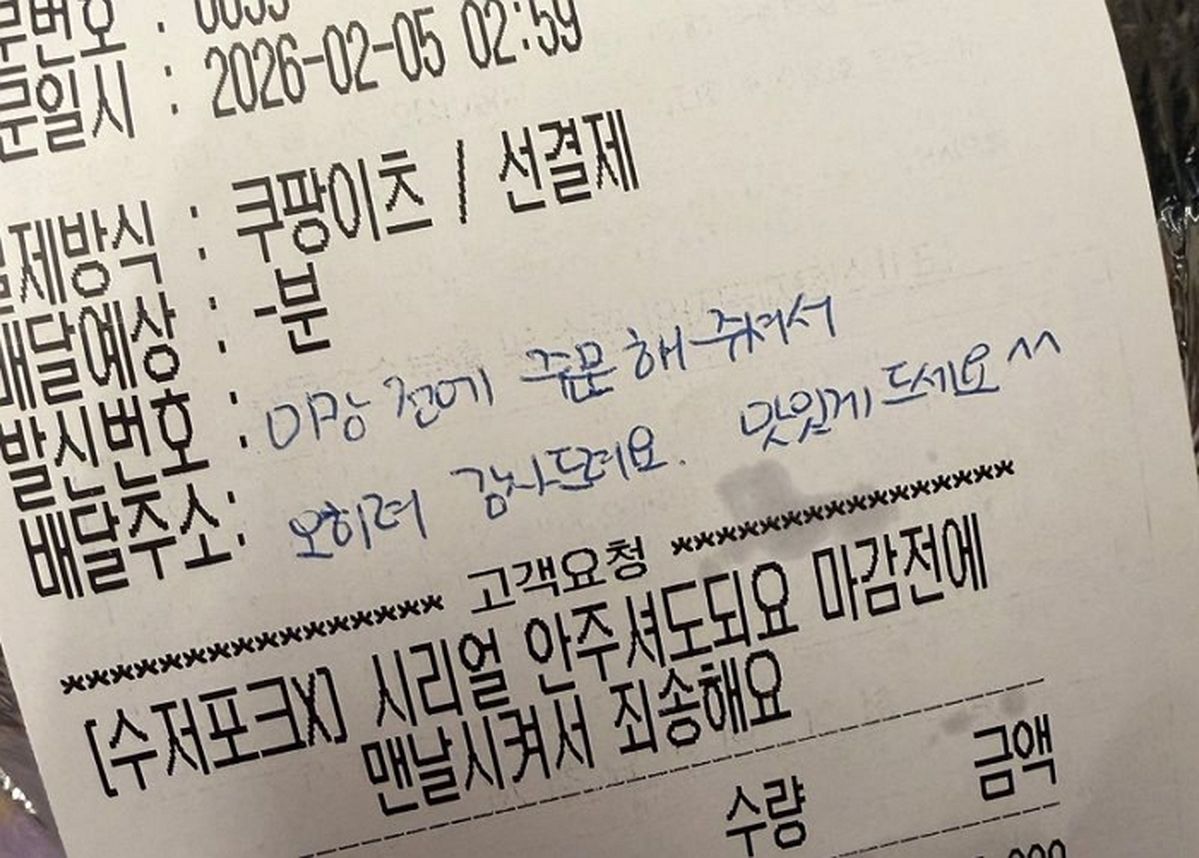 번호 : 0035
문일시 : 2026-02-05 02:59
제방식 : 쿠팡이츠 / 선결제
배달예상 : -분
발신번호 :
배달주소:
마감 전에 주문해 주셔서
오히려 감사드려요. 맛있게 드세요^^
**************** 고객요청 ****************
[수저포크X] 시리얼 안주셔도되요 마감전에
맨날시켜서 죄송해요
수량 금액